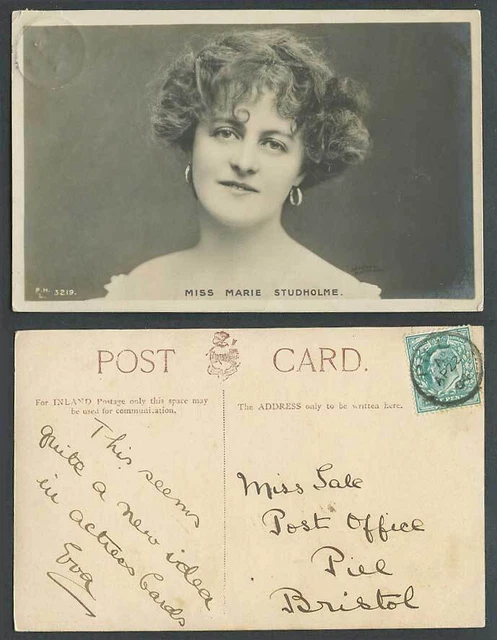 P.H.
L. 3219.
MISS MARIE STUDHOLME.
POST CARD.
For INLAND Postage only this space may
be used for communication.
The ADDRESS only to be written here.
This seems
quite a new idea
in actress Cards
Eva
Miss Sale
Post Office
Pill
Bristol